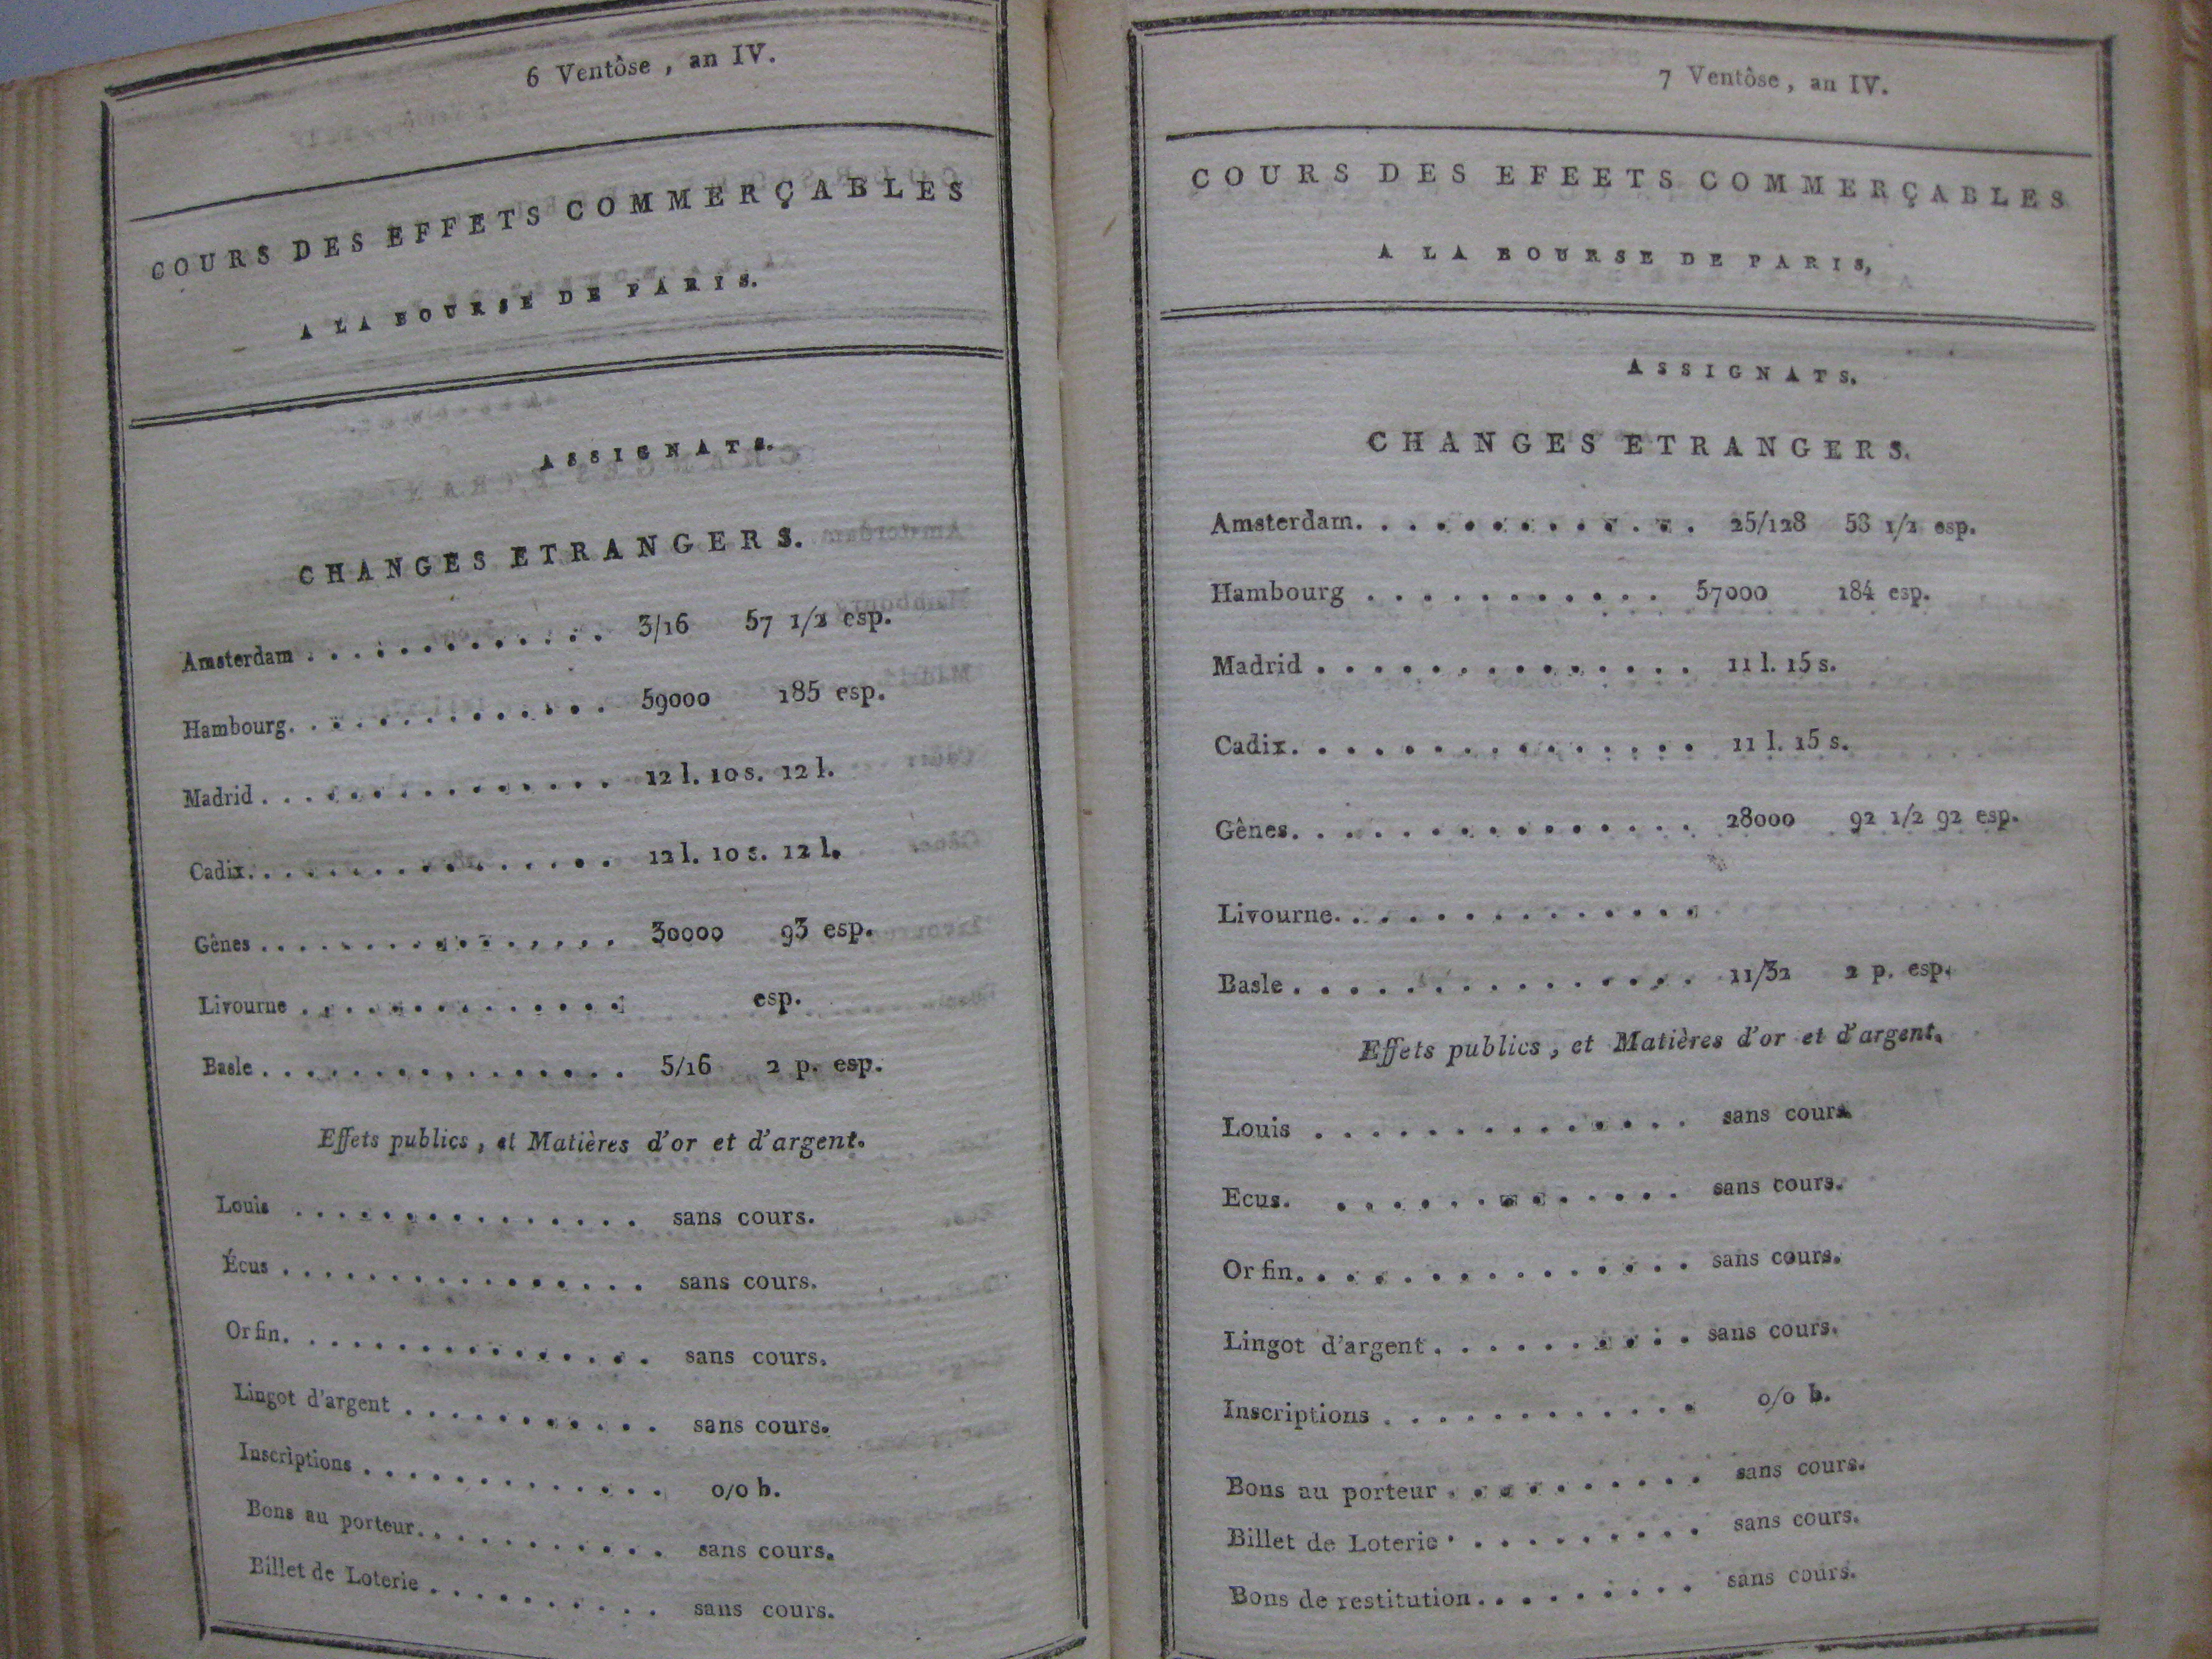 6 Ventôse, an IV.
COURS DES EFFETS COMMERÇABLES
A LA BOURSE DE PARIS.
ASSIGNATS.
CHANGES ETRANGERS.
Amsterdam . . . . . . . . . . . . . . 3/16 57 1/2 esp.
Hambourg. . . . . . . . . . . . . . 59000 185 esp.
Madrid . . . . . . . . . . . . . . . . 12 l. 10 s. 12 l.
Cadix. . . . . . . . . . . . . . . . . 12 l. 10 s. 12 l.
Gênes . . . . . . . . . . . . . . . . 30000 93 esp.
Livourne . . . . . . . . . . . . . . esp.
Basle . . . . . . . . . . . . . . . . 5/16 2 p. esp.
Effets publics, et Matières d'or et d'argent.
Louis . . . . . . . . . . . . . . . sans cours.
Écus . . . . . . . . . . . . . . . . sans cours.
Or fin. . . . . . . . . . . . . . . . sans cours.
Lingot d'argent . . . . . . . . . . . sans cours.
Inscriptions . . . . . . . . . . . . . 0/0 b.
Bons au porteur. . . . . . . . . . . sans cours.
Billet de Loterie . . . . . . . . . . sans cours.
7 Ventôse, an IV.
COURS DES EFEETS COMMERÇABLES
A LA BOURSE DE PARIS,
ASSIGNATS.
CHANGES ETRANGERS.
Amsterdam. . . . . . . . . . . . . 25/128 53 1/2 esp.
Hambourg . . . . . . . . . . . 57000 184 esp.
Madrid . . . . . . . . . . . . . . 11 l. 15 s.
Cadix. . . . . . . . . . . . . . . 11 l. 15 s.
Gênes. . . . . . . . . . . . . . . 28000 92 1/2 92 esp.
Livourne. . . . . . . . . . . . . .
Basle . . . . . . . . . . . . . . . 11/32 2 p. esp.
Effets publics, et Matières d'or et d'argent.
Louis . . . . . . . . . . . . . . sans cours.
Ecus. . . . . . . . . . . . . . sans cours.
Or fin. . . . . . . . . . . . . . . sans cours.
Lingot d'argent . . . . . . . . . . sans cours.
Inscriptions . . . . . . . . . . . . 0/0 b.
Bons au porteur . . . . . . . . . . sans cours.
Billet de Loterie . . . . . . . . . . sans cours.
Bons de restitution. . . . . . . . . sans cours.